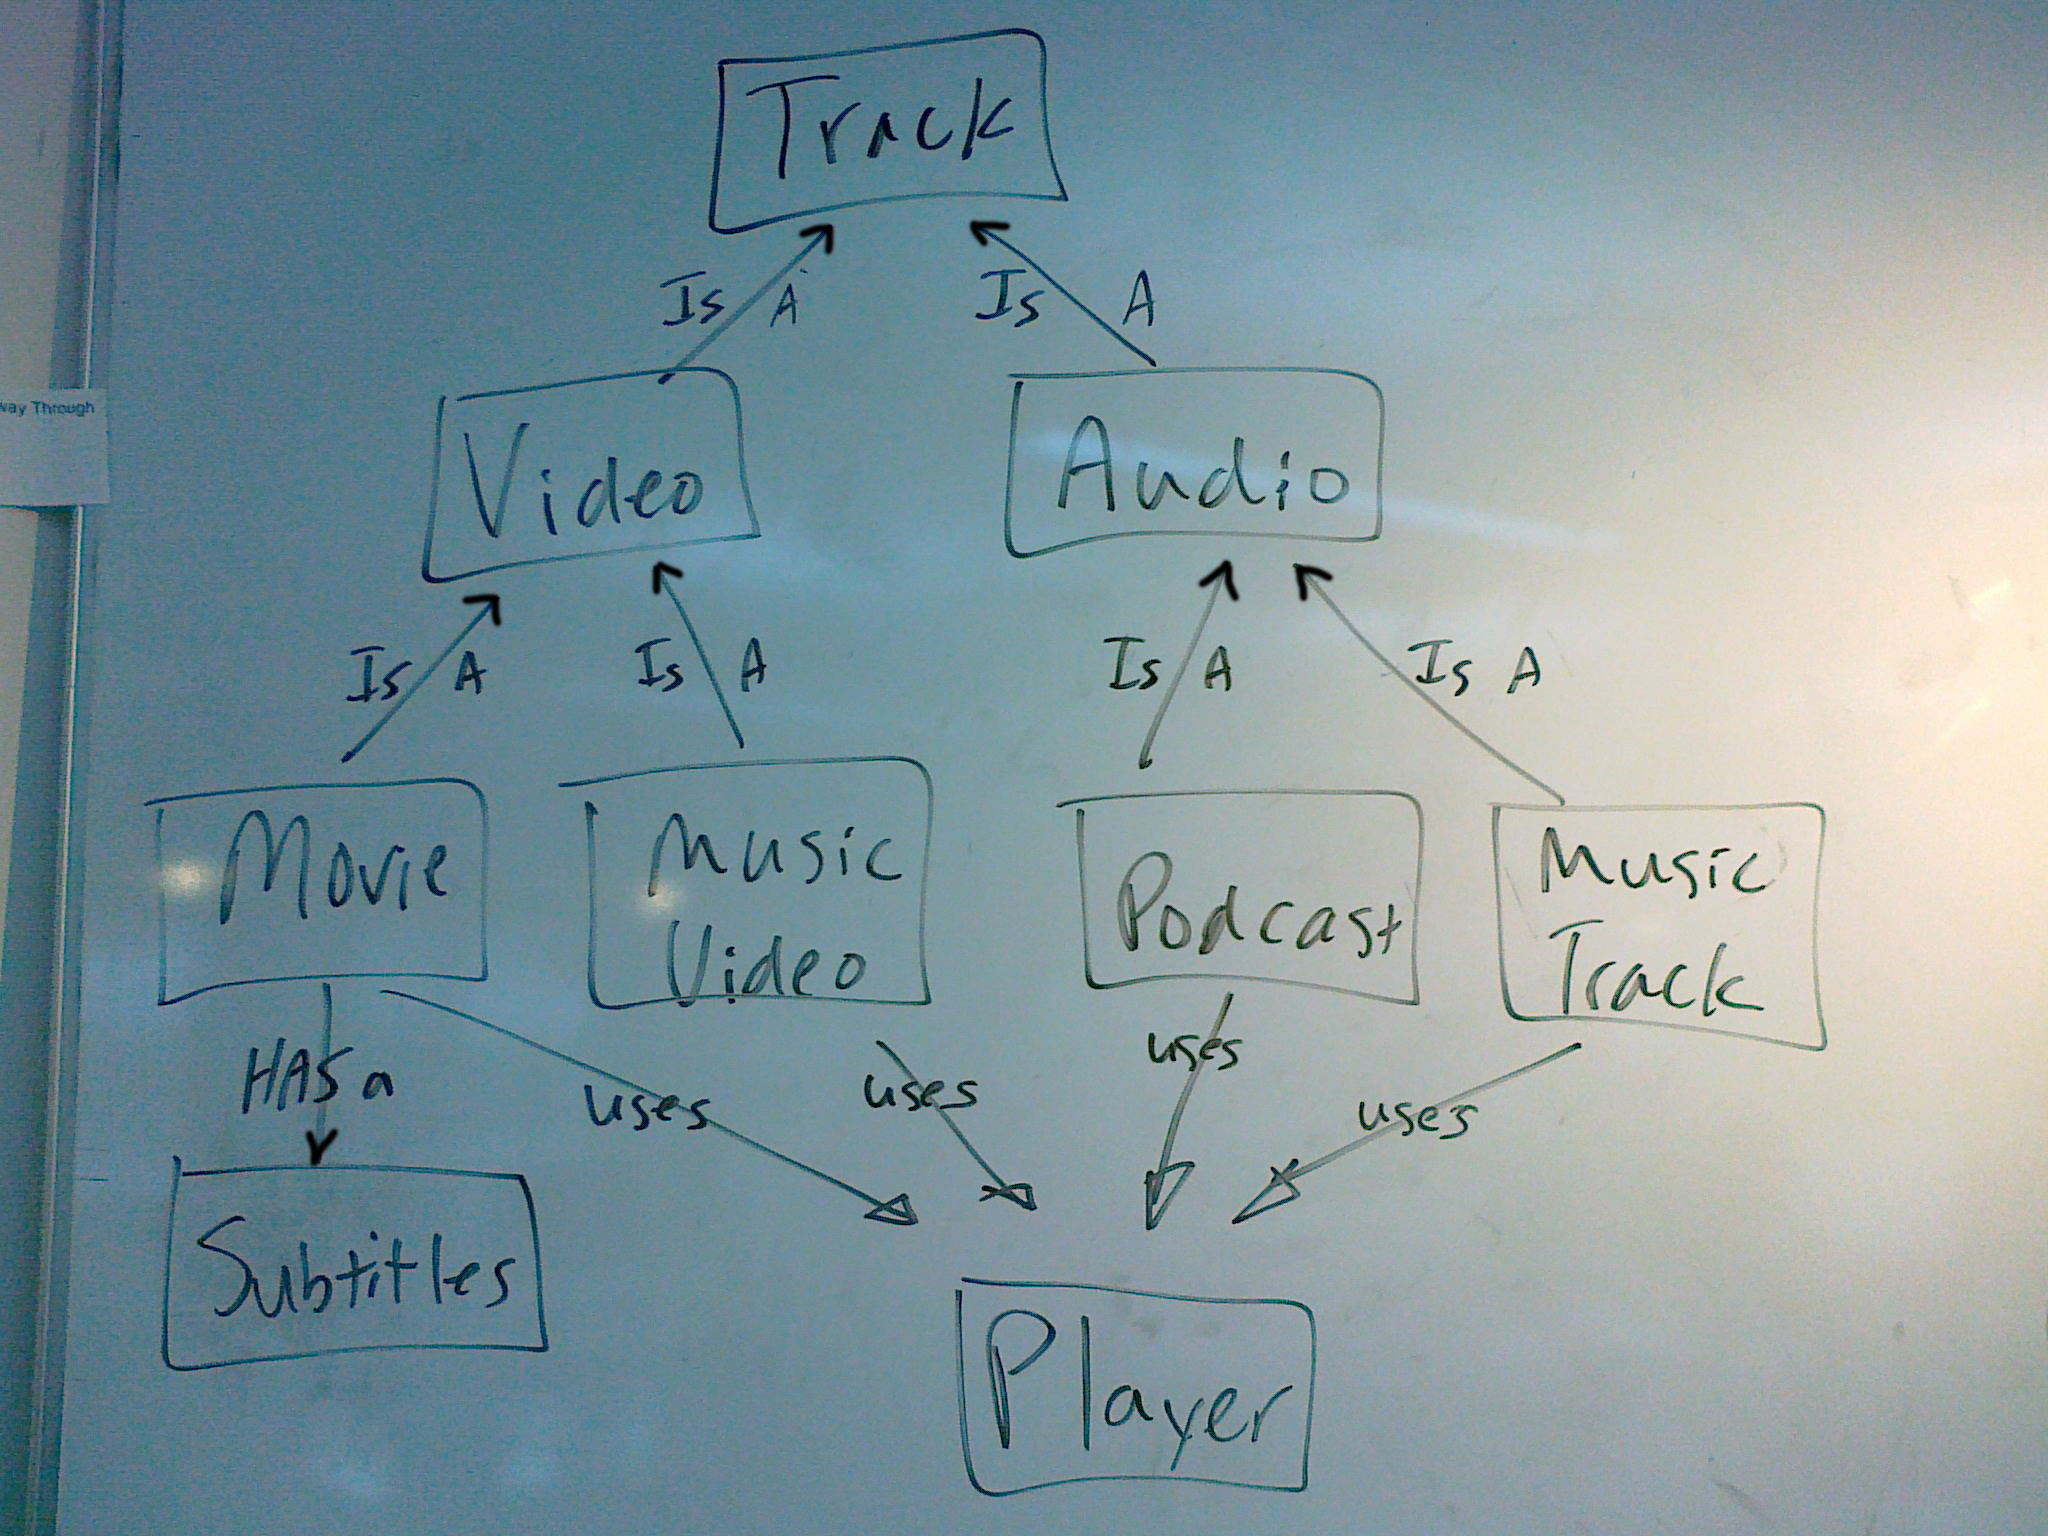 Track
Is A
Is A
way Through
Video
Audio
Is A
Is A
Is A
Is A
Movie
Music
Video
Podcast
Music
Track
HAS a
uses
uses
uses
uses
Subtitles
Player